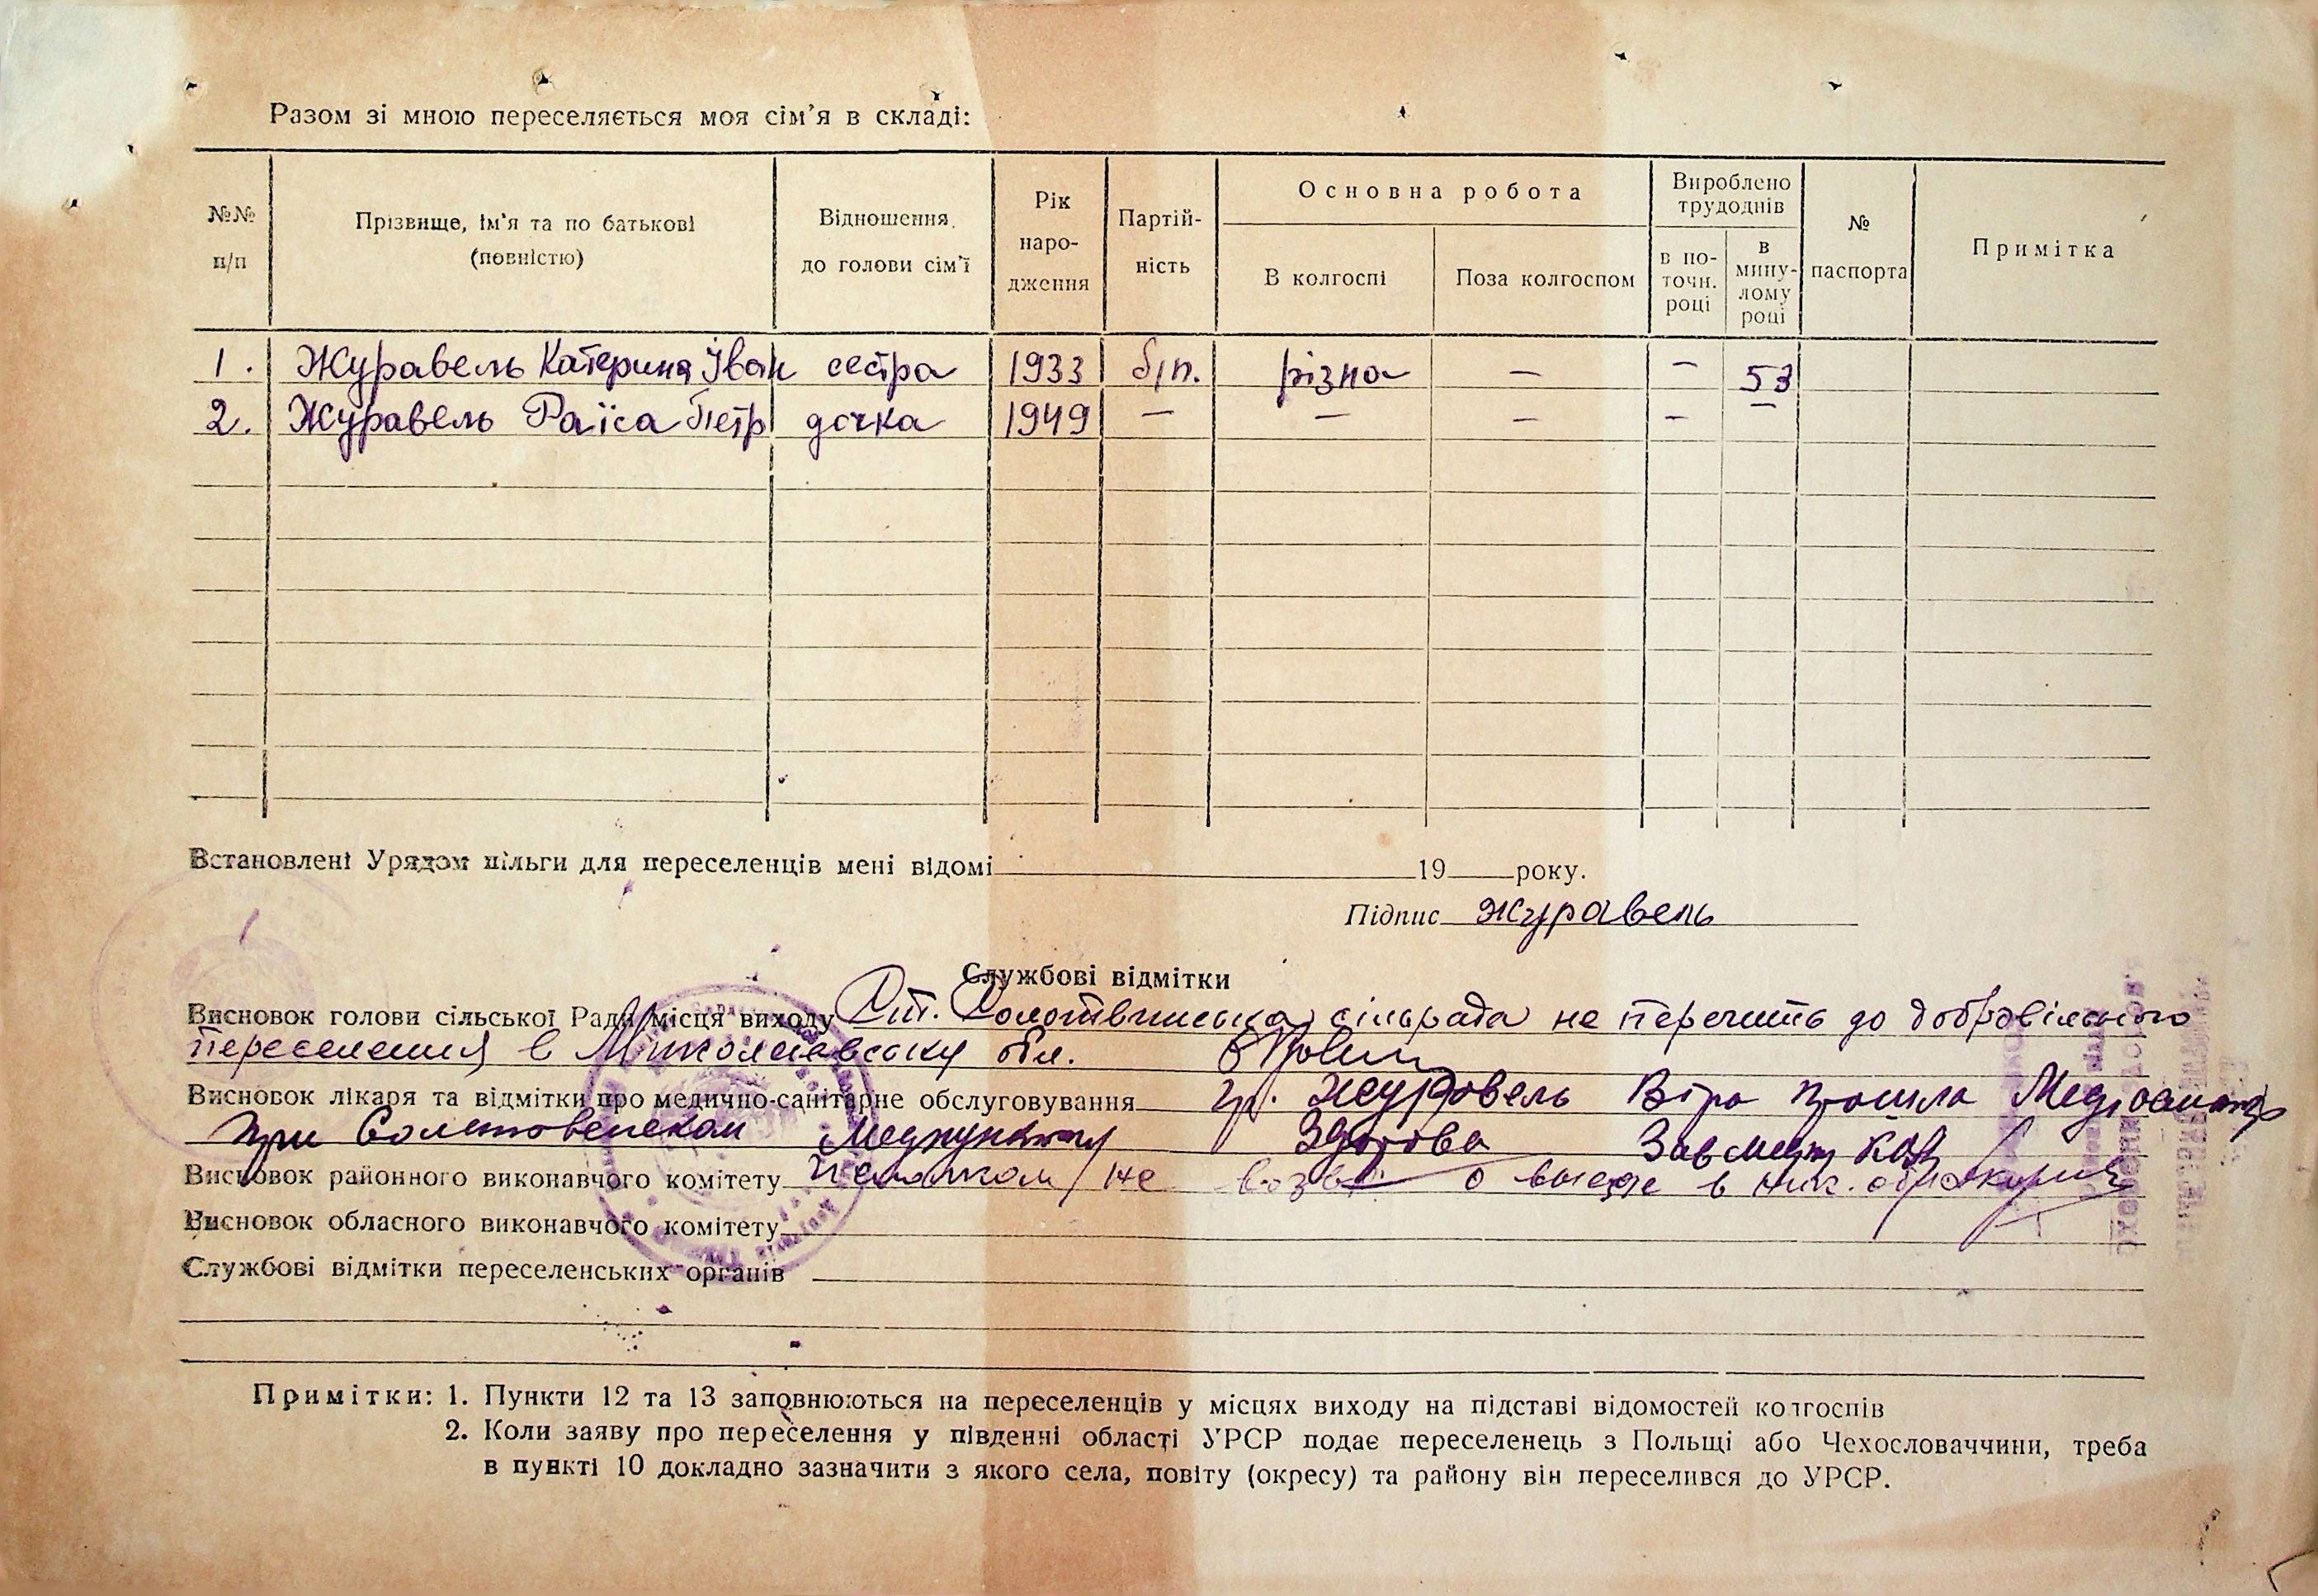 Разом зі мною переселяється моя сім'я в складі:
№№ п/п
Прізвище, ім'я та по батькові (повністю)
Відношення до голови сім'ї
Рік наро-дження
Партій-ність
Основна робота
В колгоспі
Поза колгоспом
Вироблено трудоднів
в по-точн. році
в мину-лому році
№ паспорта
Примітка
1. Журавель Катерина Іван сестра 1933 б/п. різна — — 53
2. Журавель Раїса Петр дочка 1949 — — — — —
Встановлені Урядом пільги для переселенців мені відомі 19 року.
Підпис Журавель
Службові відмітки
Висновок голови сільської Ради місця виходу Ст. Солотвинська сільрада не перечить до добровільного
переселення в Миколаївську обл.
Висновок лікаря та відмітки про медично-санітарне обслуговування гр. Журавель Віра прошла Медосмотр
при Медпункту Здорова Зав медп
Висновок районного виконавчого комітету не о выезде в Ник. обл
Висновок обласного виконавчого комітету
Службові відмітки переселенських органів
Примітки: 1. Пункти 12 та 13 заповнюються на переселенців у місцях виходу на підставі відомостей колгоспів
2. Коли заяву про переселення у південні області УРСР подає переселенець з Польщі або Чехословаччини, треба
в пункті 10 докладно зазначити з якого села, повіту (окресу) та району він переселився до УРСР.